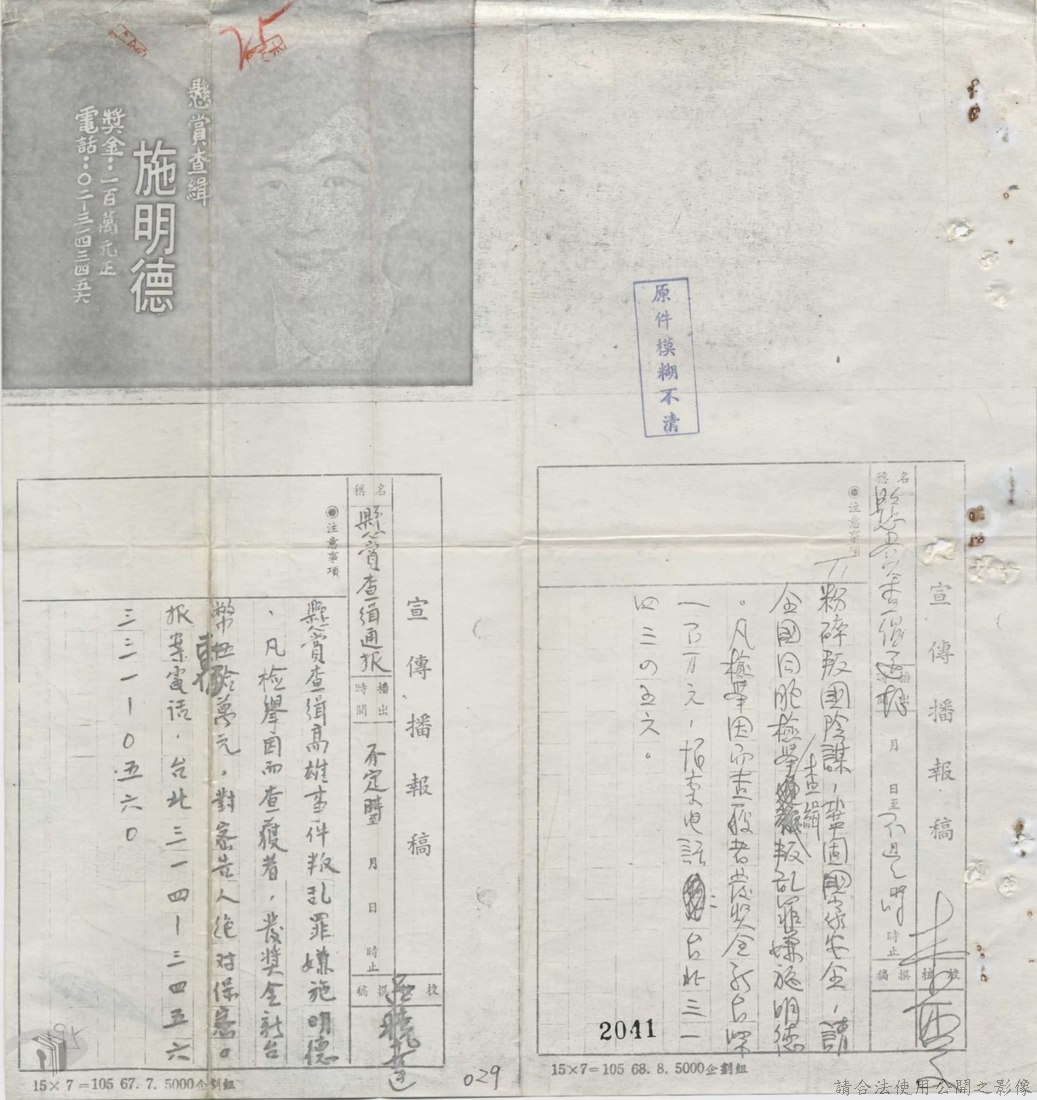 懸賞查緝
施明德
獎金：一百萬元正
電話：〇二－三一四三四五六
25
原件模糊不清
宣傳播報稿
名稱
懸賞查緝通報
播出時間
月
日至不定時
時止
撰稿
校
注意事項
粉碎叛國陰謀，鞏固國家安全，請
全國同胞檢舉查緝叛乱罪嫌施明德
。凡檢舉因而查獲者發獎金新台幣
一百万元，報案電話：台北三一
四三四五六。
2041
15×7=105 68.8.5000企劃組
宣傳播報稿
名稱
懸賞查緝通報
播出時間
不定時
月
日
時止
撰稿
校
注意事項
懸賞查緝高雄事件叛乱罪嫌施明德
、凡檢舉因而查獲者，發獎金新台
幣伍拾萬元。對密告人絕对保密。
报案電话，台北三一四－三四五六
三三一－０五六０
15×7=105 67.7.5000企劃組
029
請合法使用公開之影像